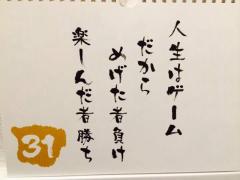 人生はゲーム
だから
めげた者負け
楽しんだ者勝ち
31